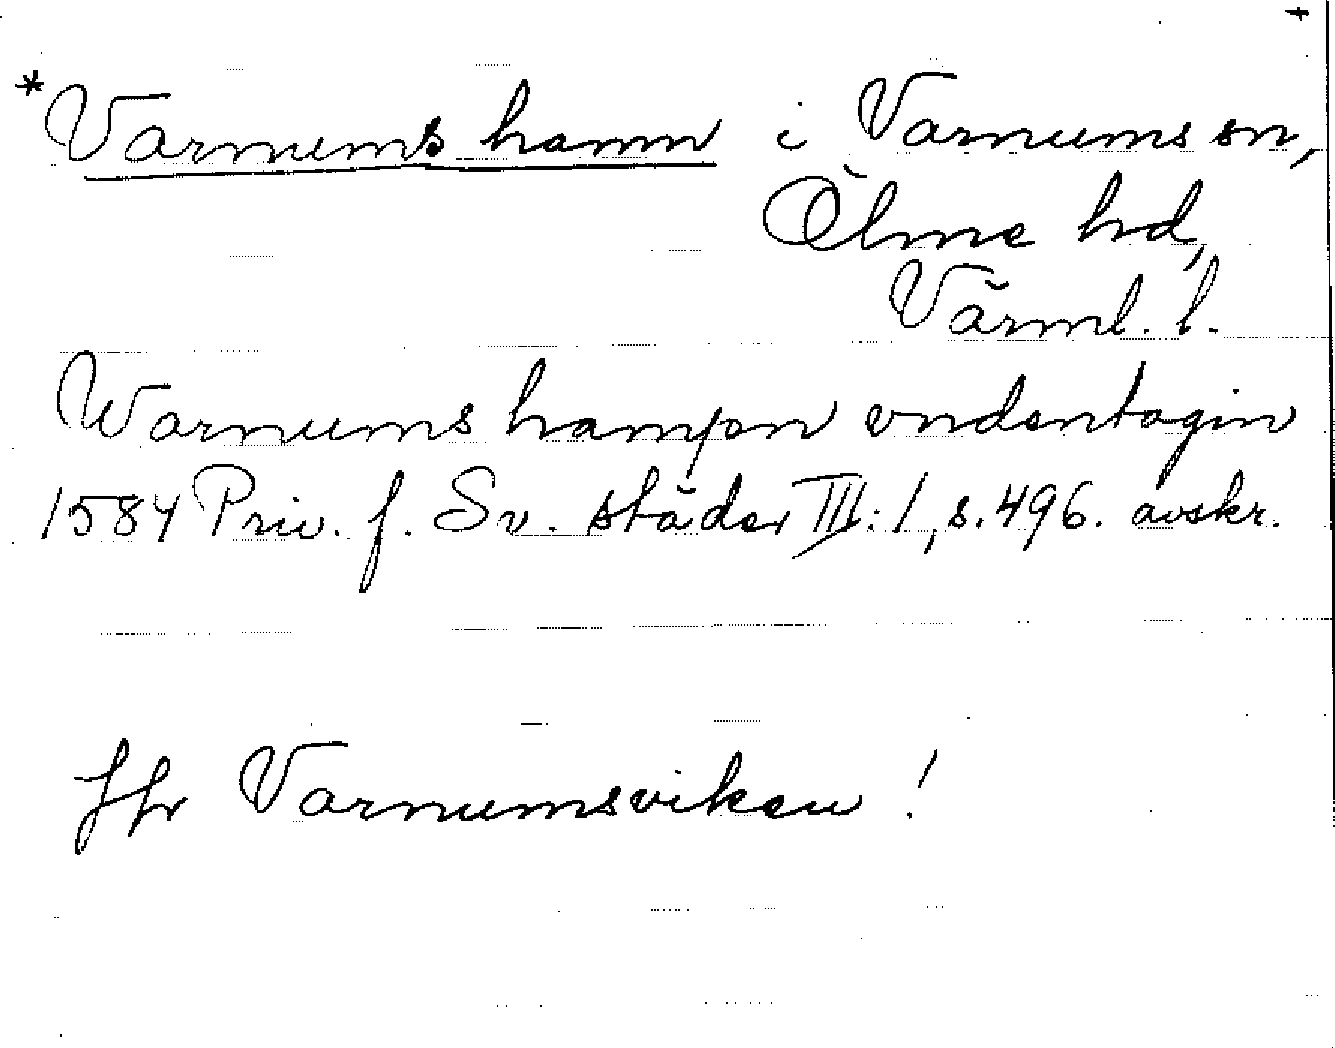 *Varnums hamn i Varnums sn,
Ölme hd,
Värml. l.
Warnums hampn vndentagin
1584 Priv. f. Sv. städer III:1, s. 496. avskr.
Jfr Varnumsviken!